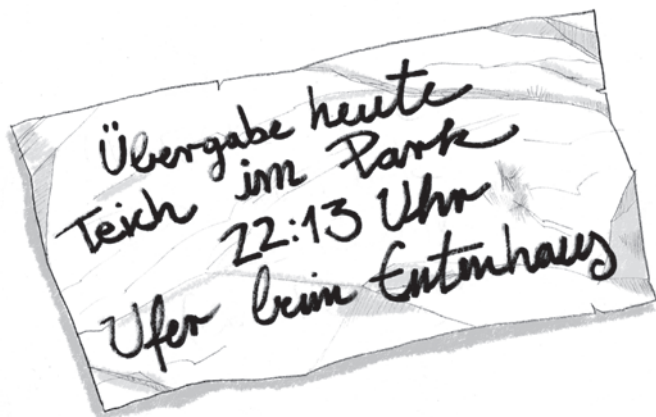 Übergabe heute
Teich im Park
22:13 Uhr
Ufer beim Entenhaus